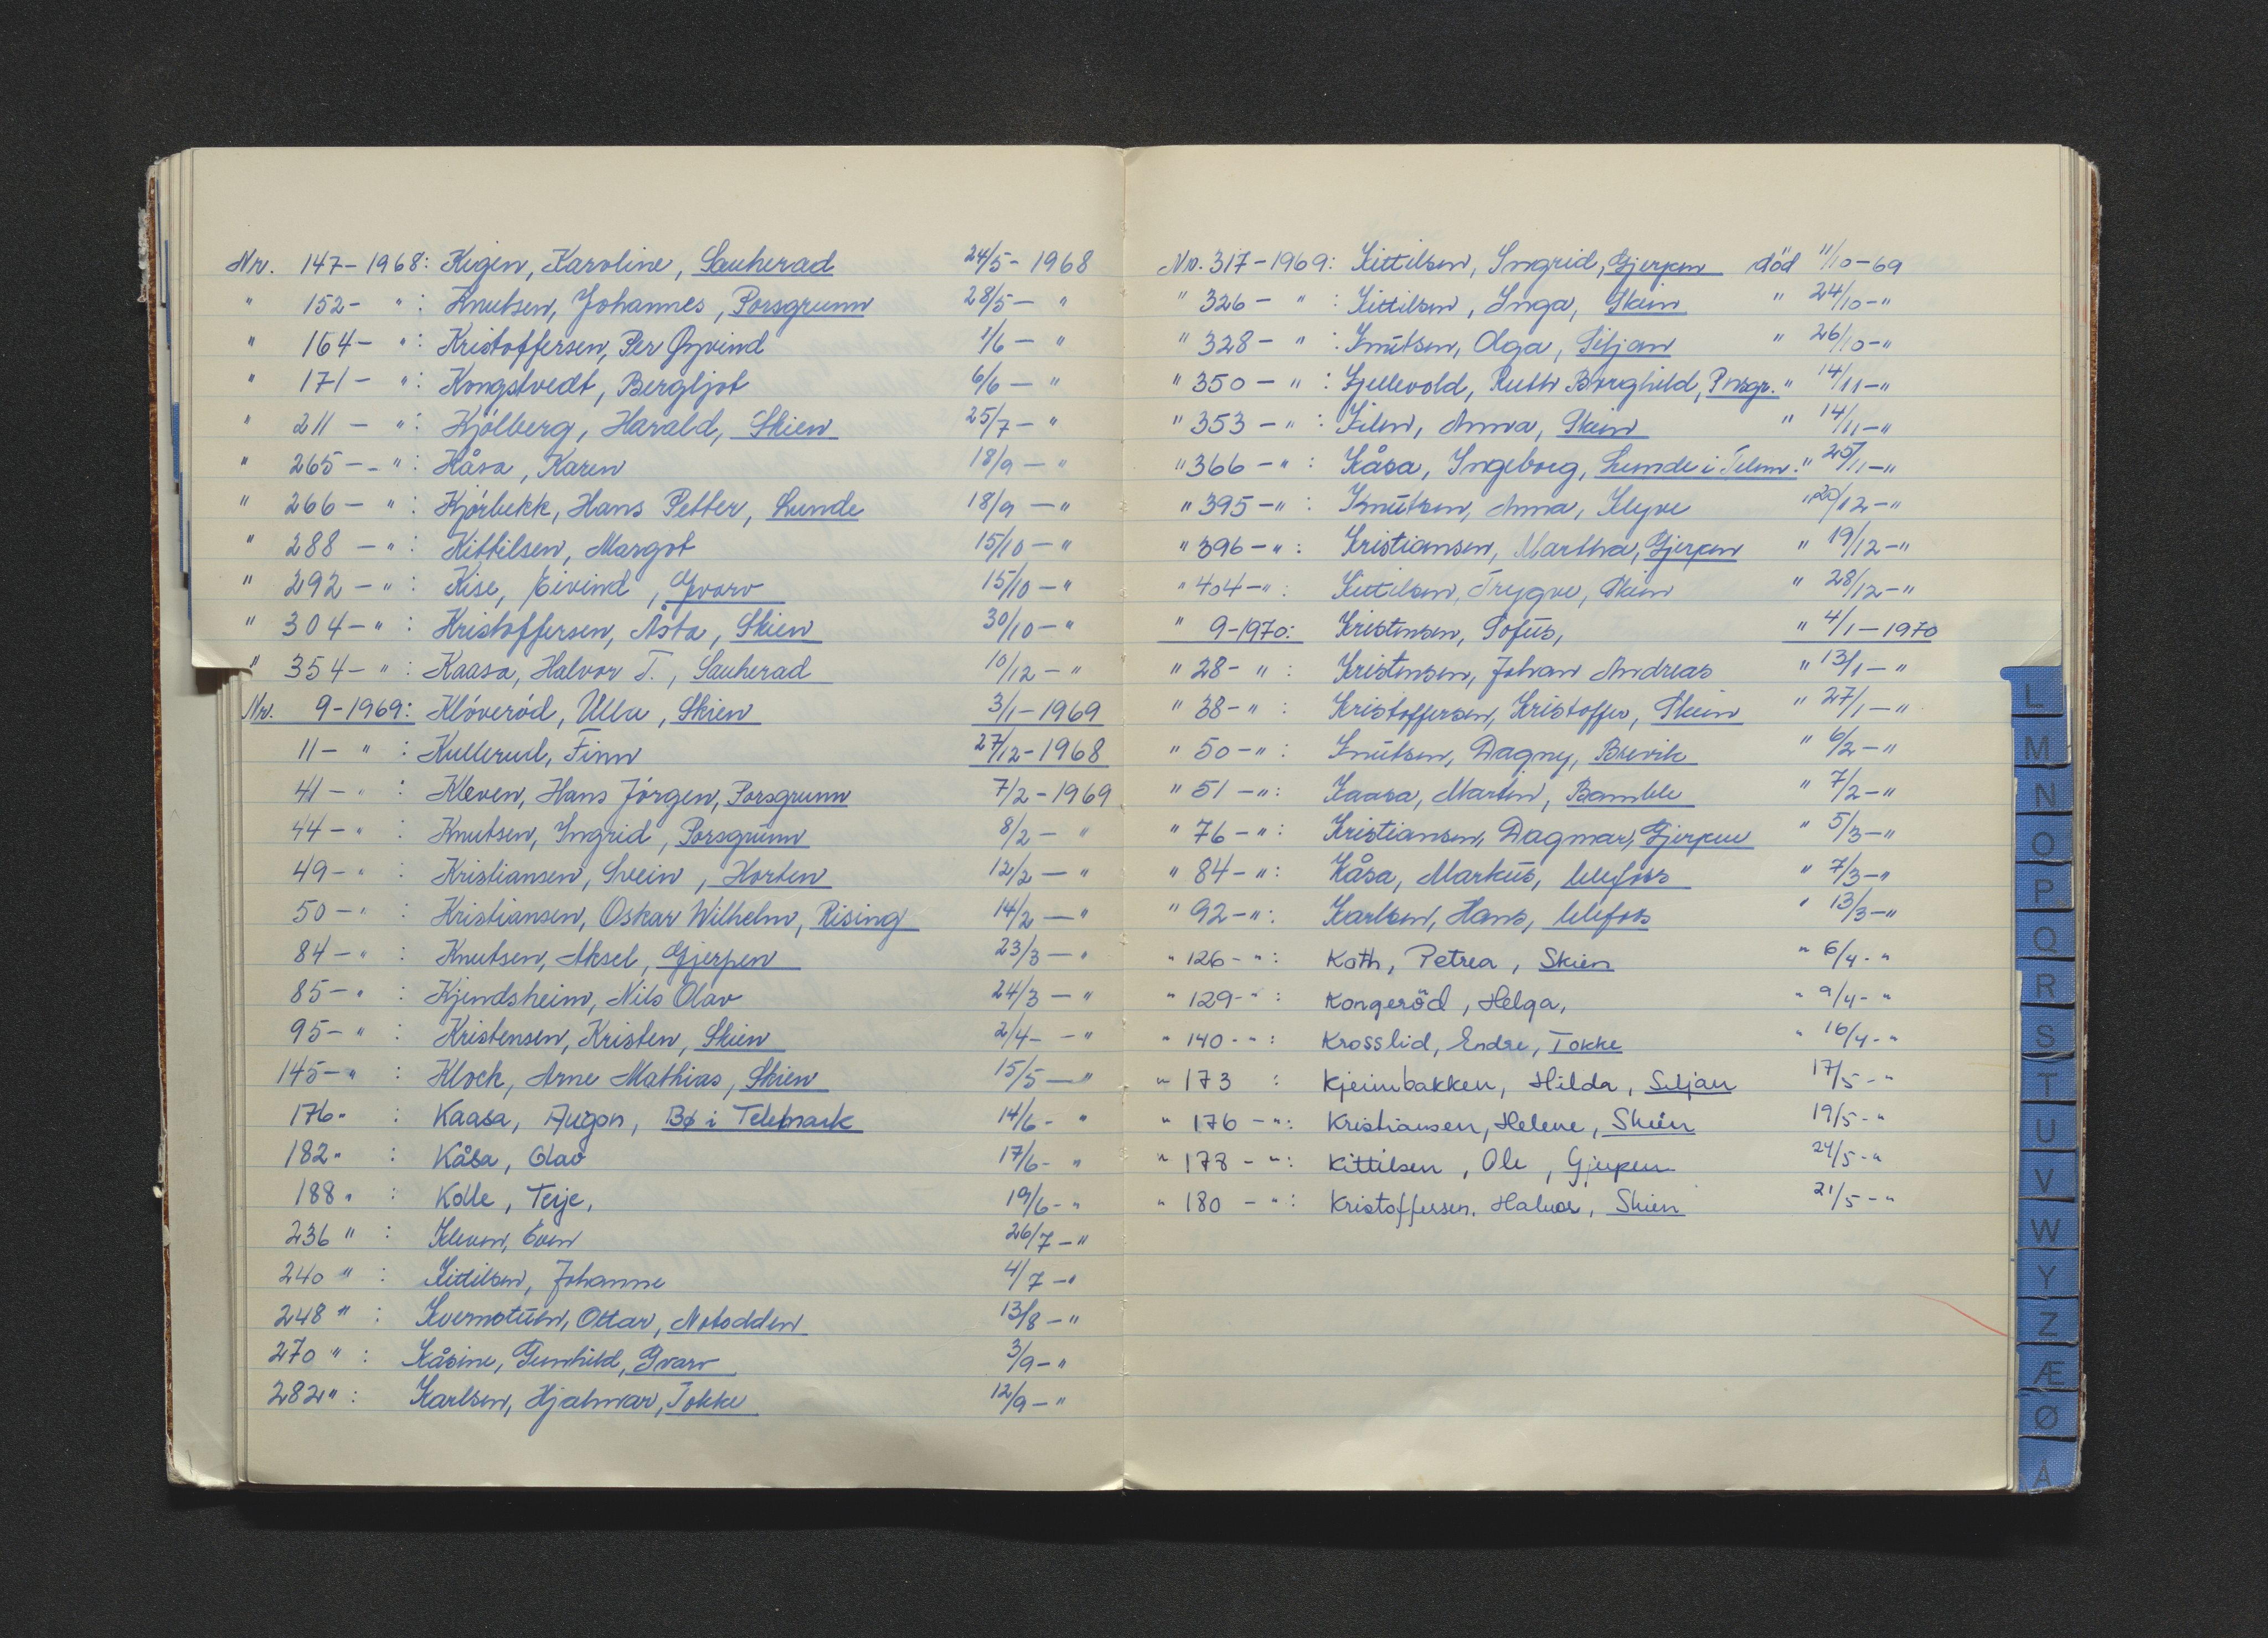 Nr. 147-1968: Kigen, Karoline, Sauherad 24/5-1968
" 152- ": Knutsen, Johannes, Porsgrunn 28/5- "
" 164- ": Kristoffersen, Per Øyvind 1/6- "
" 171- ": Kongstvedt, Bergljot 6/6- "
" 211- ": Kjölberg, Harald, Skien 25/7- "
" 265- ": Kåsa, Karen 18/9- "
" 266- ": Kjörbekk, Hans Petter, Lunde 18/9- "
" 288- ": Kittilsen, Margot 15/10- "
" 292- ": Kise, Eivind, Gvarv 15/10- "
" 304- ": Kristoffersen, Åsta, Skien 30/10- "
" 354- ": Kaasa, Halvor T., Sauherad 10/12- "
Nr. 9-1969: Klöveröd, Ulla, Skien 3/1-1969
11- ": Kullerud, Finn 27/12-1968
41- ": Kleven, Hans Jörgen, Porsgrunn 7/2-1969
44- ": Knutsen, Ingrid, Porsgrunn 8/2- "
49- ": Kristiansen, Svein, Horten 12/2- "
50- ": Kristiansen, Oskar Wilhelm, Rising 14/2- "
84- ": Knutsen, Aksel, Gjerpen 23/3- "
85- ": Kjendsheim, Nils Olav 24/3- "
95- ": Kristensen, Kristen, Skien 2/4- "
145- ": Klock, Arne Mathias, Skien 15/5- "
176 ": Kaasa, Augon, Bø i Telemark 14/6- "
182 ": Kåsa, Olav 17/6- "
188 ": Kolle, Terje, 19/6- "
236 ": Kleven, Even 26/7- "
240 ": Kittilsen, Johanne 4/7- "
248 ": Kvernstuen, Ottar, Notodden 13/8- "
270 ": Kåsine, Gunhild, Gvarv 3/9- "
282 ": Karlsen, Hjalmar, Tokke 12/9- "
Nr. 317-1969: Kittilsen, Ingrid, Gjerpen död 11/10-69
" 326- ": Kittilsen, Inga, Skien " 24/10- "
" 328- ": Knutsen, Olga, Siljan " 26/10- "
" 350- ": Kjellevold, Ruth Borghild, Porsgr. " 14/11- "
" 353- ": Kilen, Anna, Skien " 14/11- "
" 366- ": Kåsa, Ingeborg, Lunde i Telem. " 25/11- "
" 395- ": Knutsen, Anna, Klyve " 20/12- "
" 396- ": Kristiansen, Martha, Gjerpen " 19/12- "
" 404- ": Kittilsen, Trygve, Skien " 28/12- "
" 9-1970: Kristensen, Sofus, " 4/1-1970
" 28- ": Kristensen, Johan Andreas " 13/1- "
" 38- ": Kristoffersen, Kristoffer, Skien " 27/1- "
" 50- ": Knutsen, Dagny, Brevik " 6/2- "
" 51- ": Kaasa, Martin, Bamble " 7/2- "
" 76- ": Kristiansen, Dagmar, Gjerpen " 5/3- "
" 84- ": Kåsa, Markus, Ulefoss " 7/3- "
" 92- ": Karlsen, Hans, Ulefoss " 13/3- "
" 126- ": Koth, Petrea, Skien " 6/4- "
" 129- ": Kongeröd, Helga, " 9/4- "
" 140- ": Krosslid, Endre, Tokke " 16/4- "
" 173 : Kjeimbakken, Hilda, Siljan 17/5- "
" 176- ": Kristiansen, Helene, Skien 19/5- "
" 178- ": Kittilsen, Ole, Gjerpen 24/5- "
" 180- ": Kristoffersen, Halvor, Skien 21/5- "
L
M
N
O
P
Q
R
S
T
U
V
W
Y
Z
Æ
Ø
Å